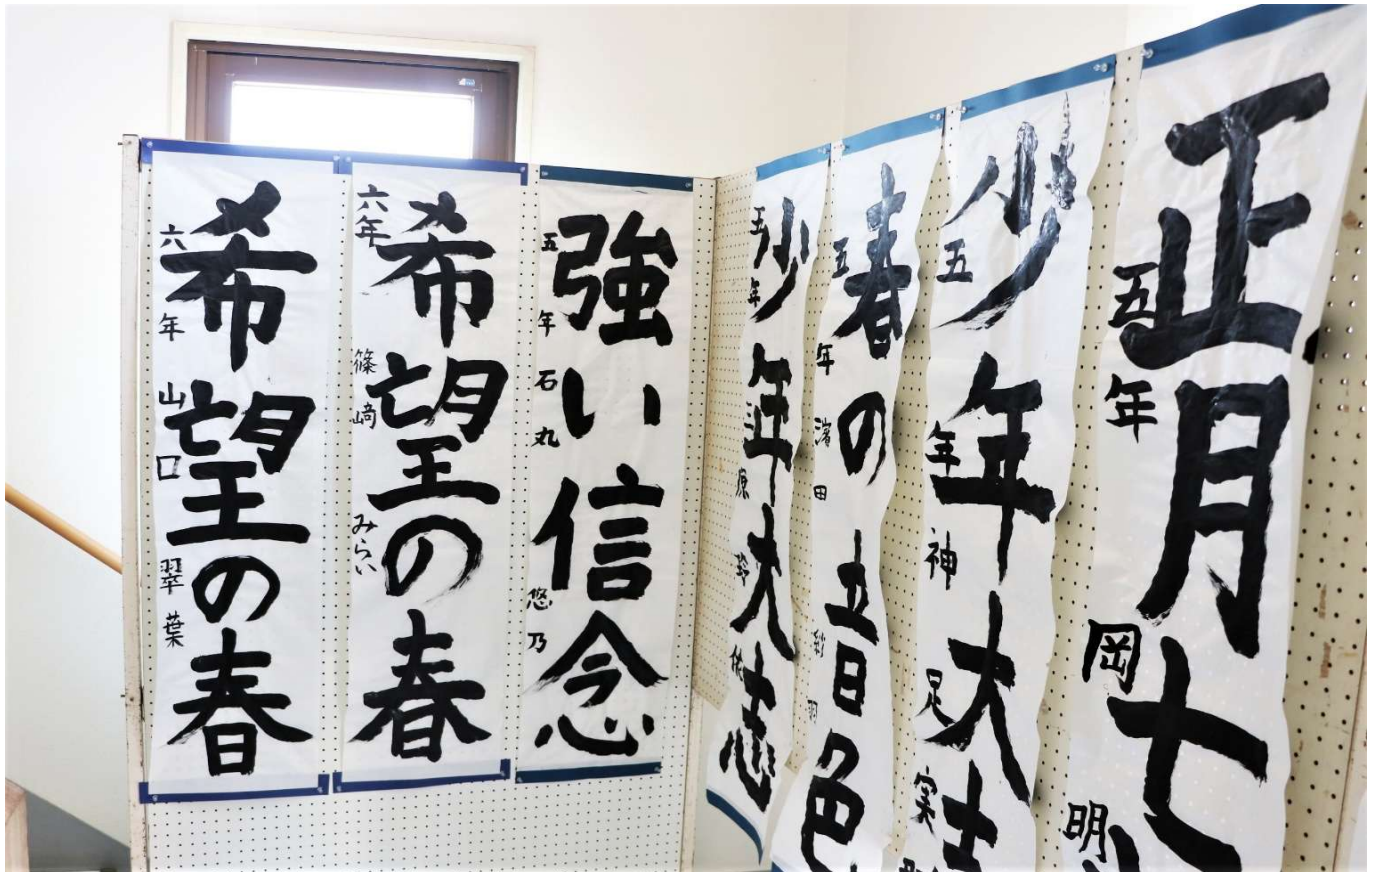 希望の春
六年 山口 翠葉
希望の春
六年 篠﨑 みらい
強い信念
五年 石丸 悠乃
少年大志
五年 原 玲
春の音色
五年 濱田 紗羽
少年大志
五年 神足 実
正月七
五年 岡 明